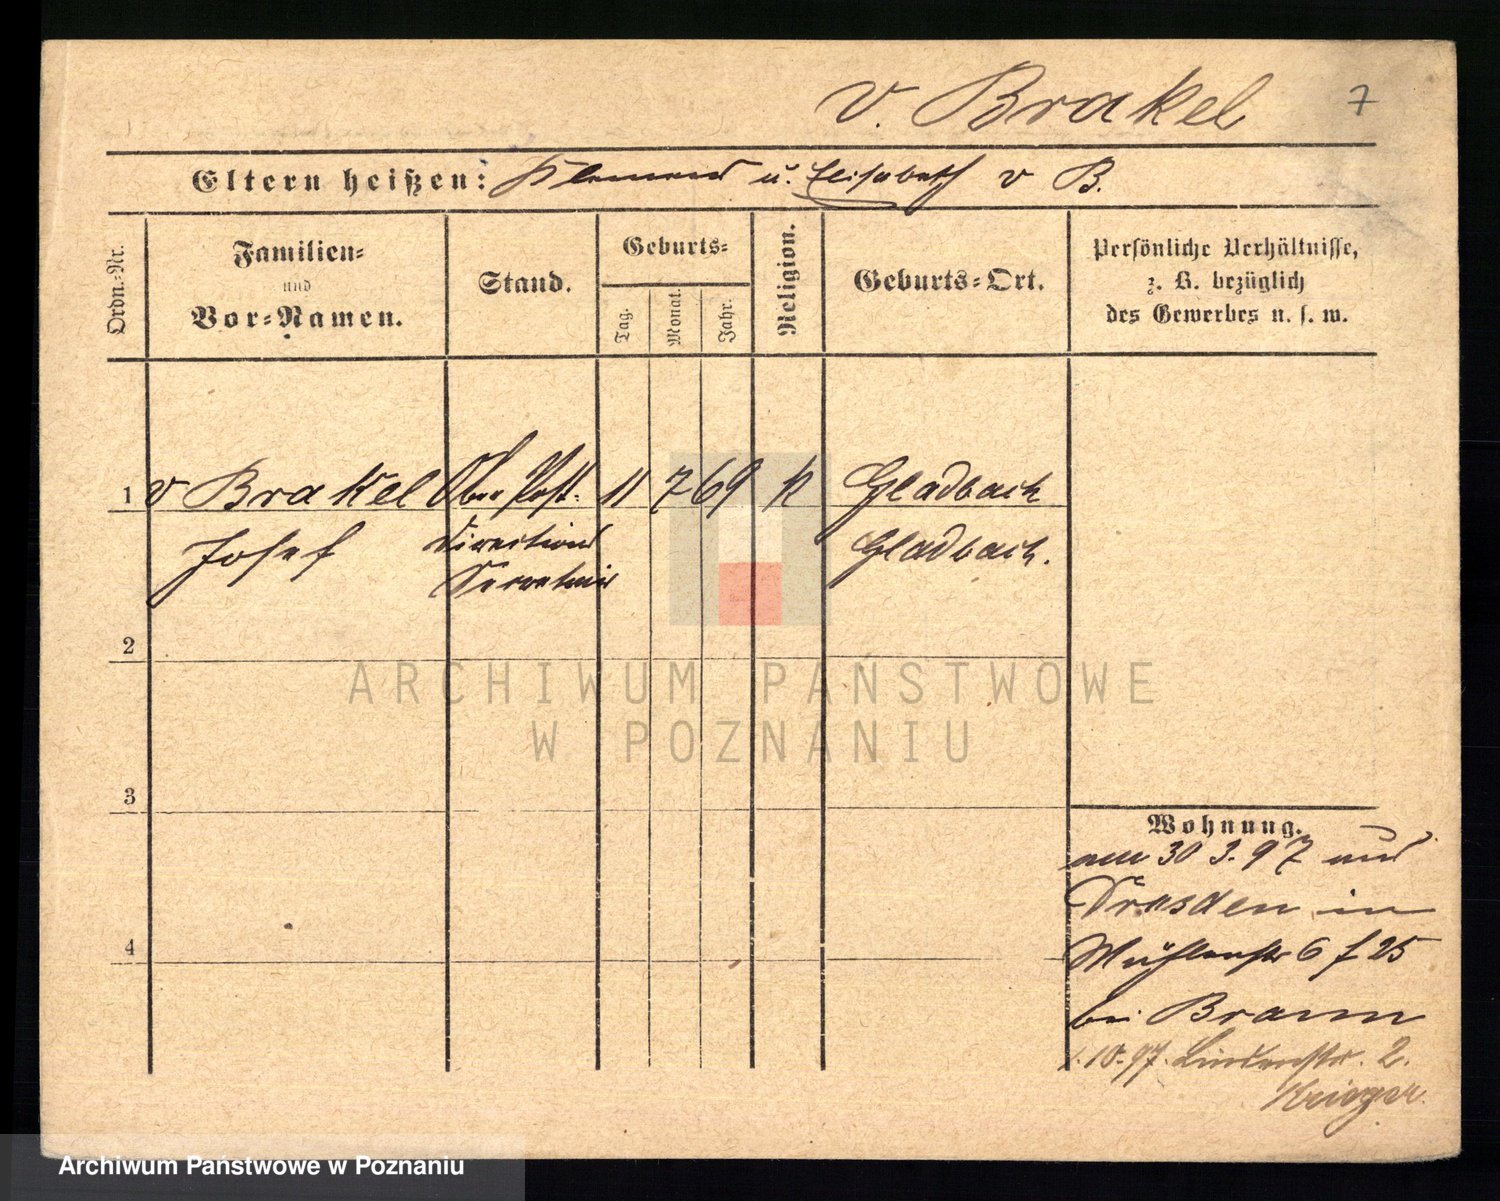 v. Brakel 7
Eltern heißen: Klemens u. Elisabeth v B.
Ordn.-Nr.
Familien-
und
Vor-Namen.
Stand.
Geburts-
Tag.
Monat.
Jahr.
Religion.
Geburts-Ort.
Persönliche Verhältnisse,
z. B. bezüglich
des Gewerbes u. s. w.
1 v Brakel Ober Post- 11 7 69 k Gladbach
Josef Direktions Gladbach.
Secretair
2
ARCHIWUM PAŃSTWOWE
W POZNANIU
3
Wohnung.
am 30 3. 97 aus
Dresden in
Mühlenstr 6 f 25
4
bei Braun
1. 10. 97. Lindenstr. 2.
Krieger
Archiwum Państwowe w Poznaniu